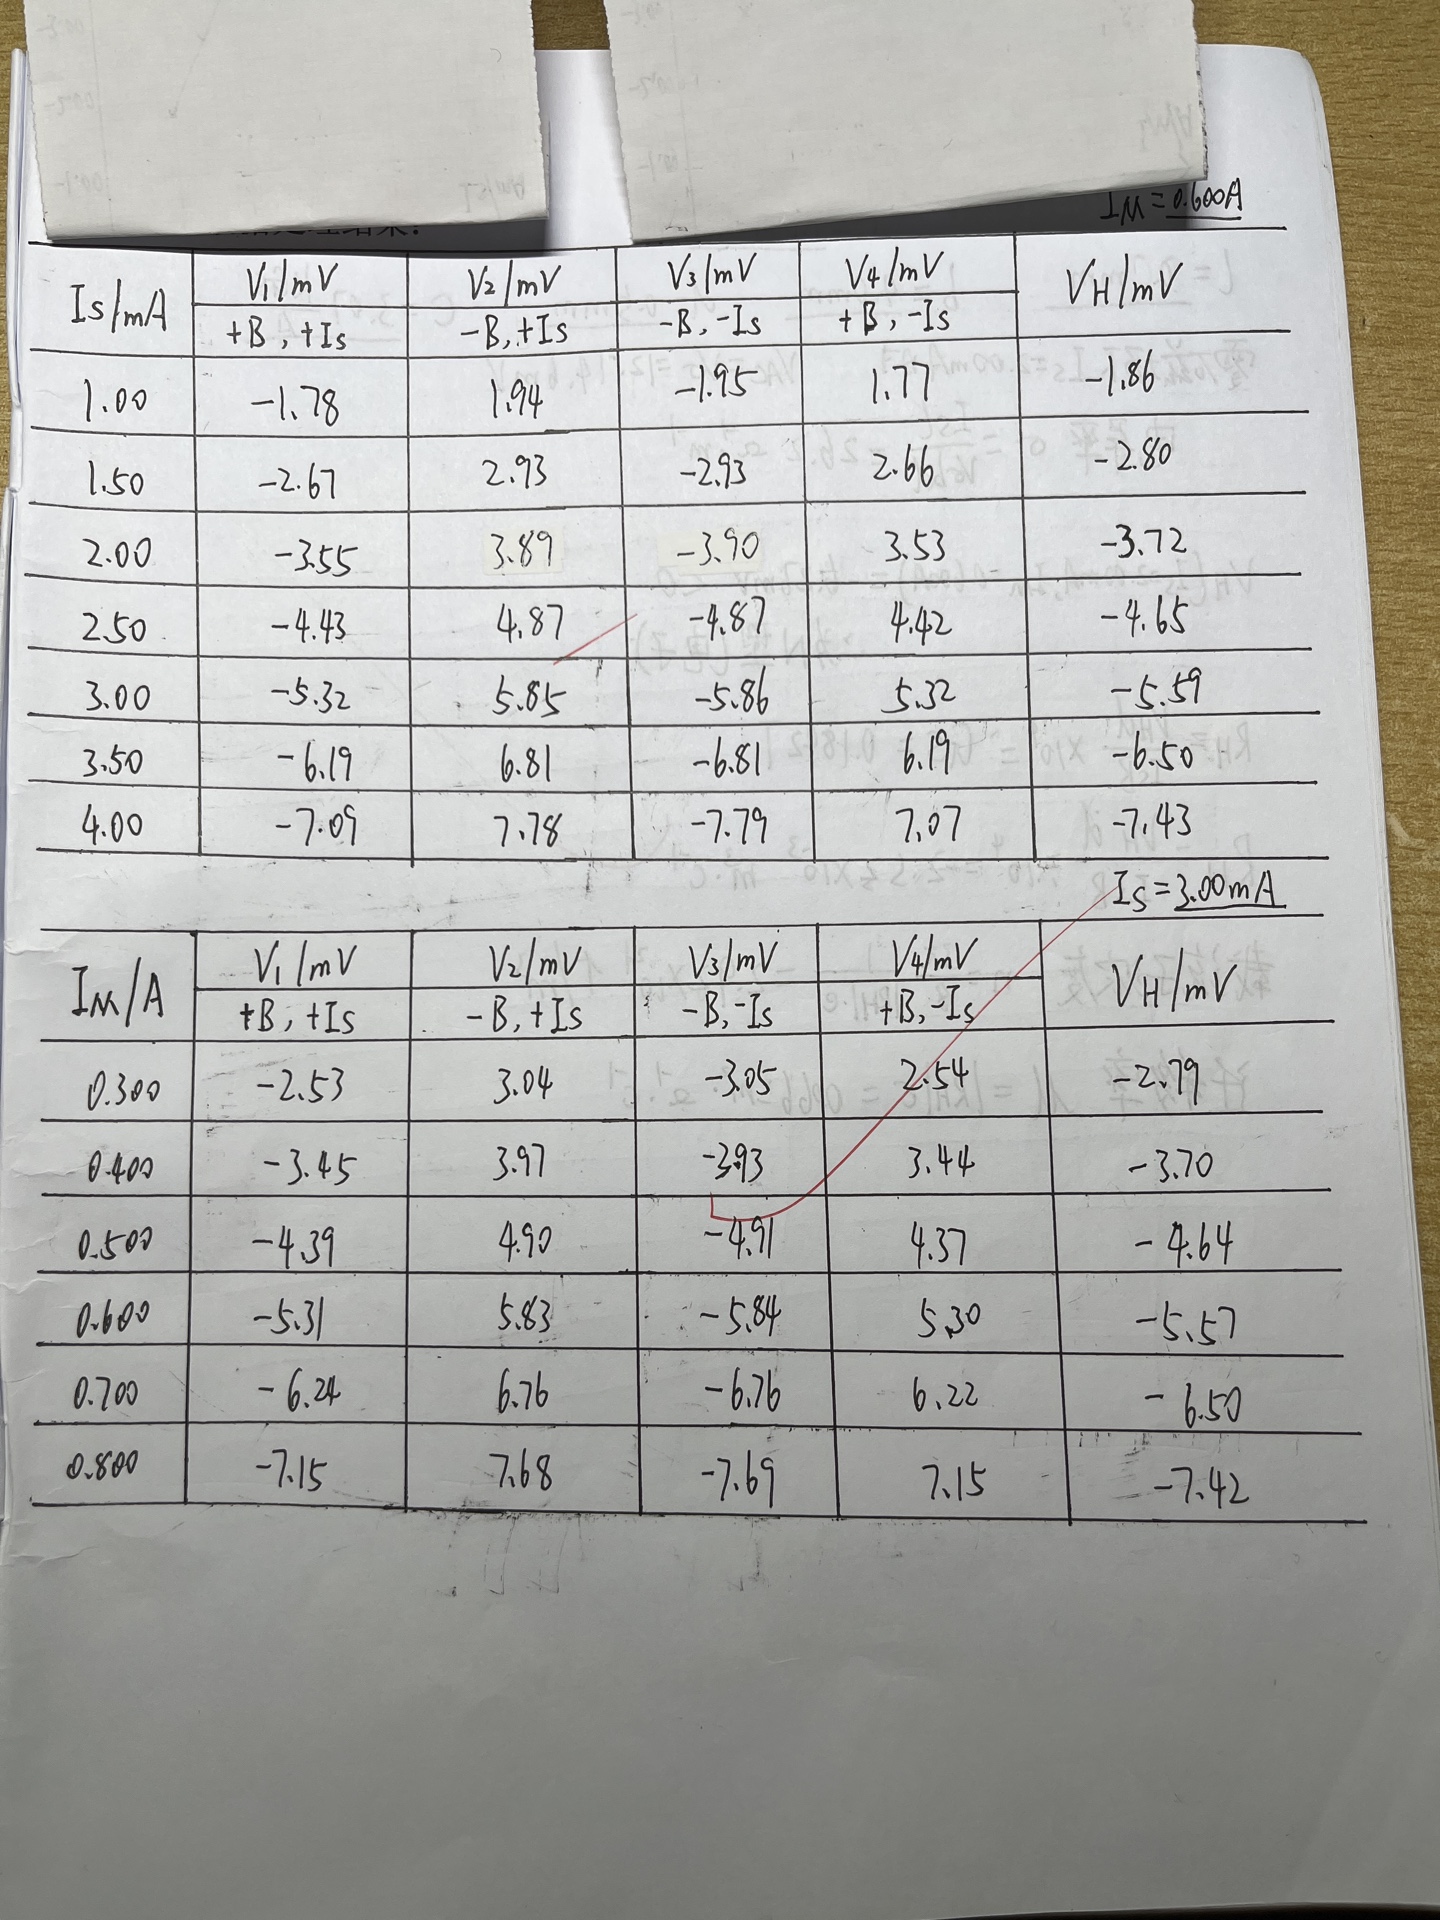 IM = 0.600A
Is/mA V1/mV V2/mV V3/mV V4/mV VH/mV
+B, +Is -B, +Is -B, -Is +B, -Is
1.00 -1.78 1.94 -1.95 1.77 -1.86
1.50 -2.67 2.93 -2.93 2.66 -2.80
2.00 -3.55 3.89 -3.90 3.53 -3.72
2.50 -4.43 4.87 -4.87 4.42 -4.65
3.00 -5.32 5.85 -5.86 5.32 -5.59
3.50 -6.19 6.81 -6.81 6.19 -6.50
4.00 -7.09 7.78 -7.79 7.07 -7.43
Is = 3.00mA
IM/A V1/mV V2/mV V3/mV V4/mV VH/mV
+B, +Is -B, +Is -B, -Is +B, -Is
0.300 -2.53 3.04 -3.05 2.54 -2.79
0.400 -3.45 3.97 -3.93 3.44 -3.70
0.500 -4.39 4.90 -4.91 4.37 -4.64
0.600 -5.31 5.83 -5.84 5.30 -5.57
0.700 -6.24 6.76 -6.76 6.22 -6.50
0.800 -7.15 7.68 -7.69 7.15 -7.42